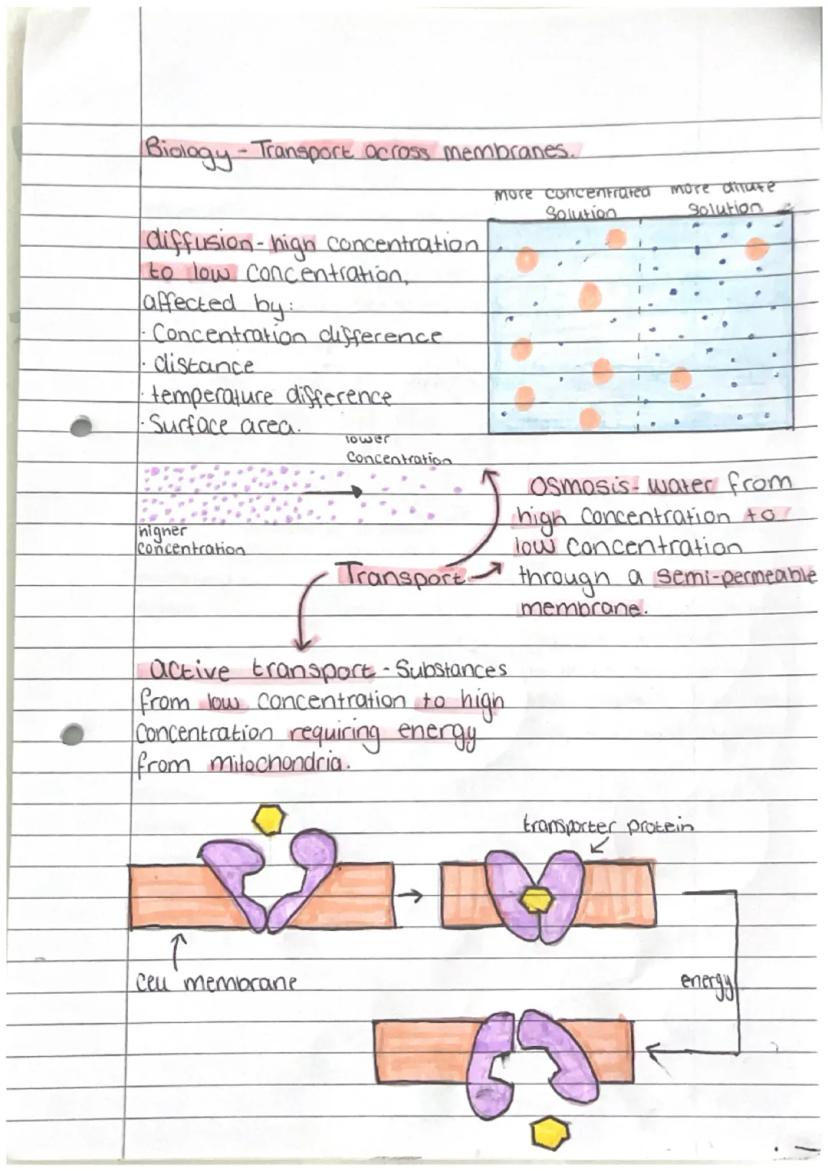 Biology - Transport across membranes.
more concentrated solution
more dilute solution
diffusion - high concentration
to low concentration,
affected by:
· Concentration difference
· distance
· temperature difference
· Surface area.
lower
concentration
higher
concentration
Osmosis - water from
high concentration to
low concentration
through a semi-permeable
membrane.
Transport
active transport - Substances
from low concentration to high
concentration requiring energy
from mitochondria.
transporter protein
cell membrane
energy